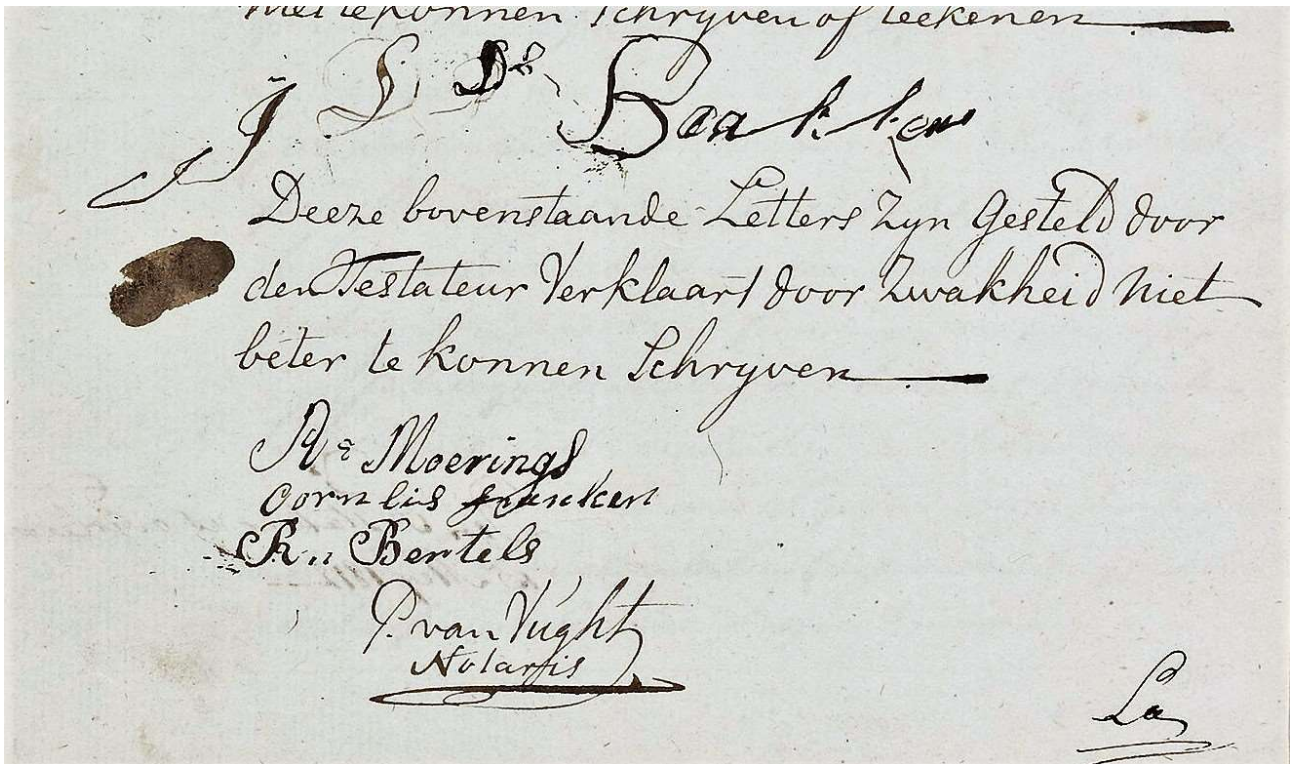 niet te konnen Schryven of teekenen
J
Deeze bovenstaande Letters Zyn Gesteld door
den Testateur Verklaart door Zwakheid Niet
beter te konnen Schryven
Moerings
Cornlis
R,, Bertels
P. van Vught
Notaris
La